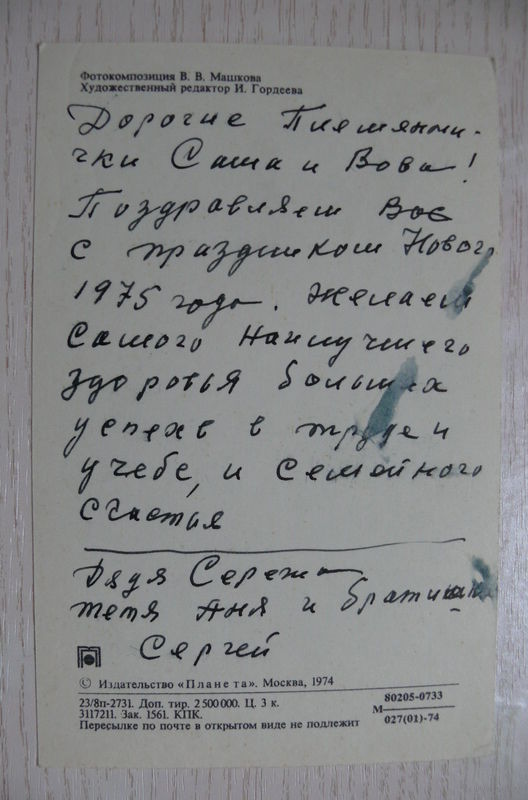 Фотокомпозиция В. В. Машкова
Художественный редактор И. Гордеева
Дорогие Племянни-
чки Саша и Вова!
Поздравляем Вас
с праздником Нового
1975 года. Желаем
самого наилучшего
здоровья больших
успехв в труде и
учебе, и семейного
счастия
Дядя Сережа
тетя Аня и братишка
Сергей
© Издательство «Планета». Москва, 1974
23/8п-2731. Доп. тир. 2 500 000. Ц. 3 к.
3117211. Зак. 1561. КПК.
Пересылке по почте в открытом виде не подлежит
80205-0733
М
027(01)-74